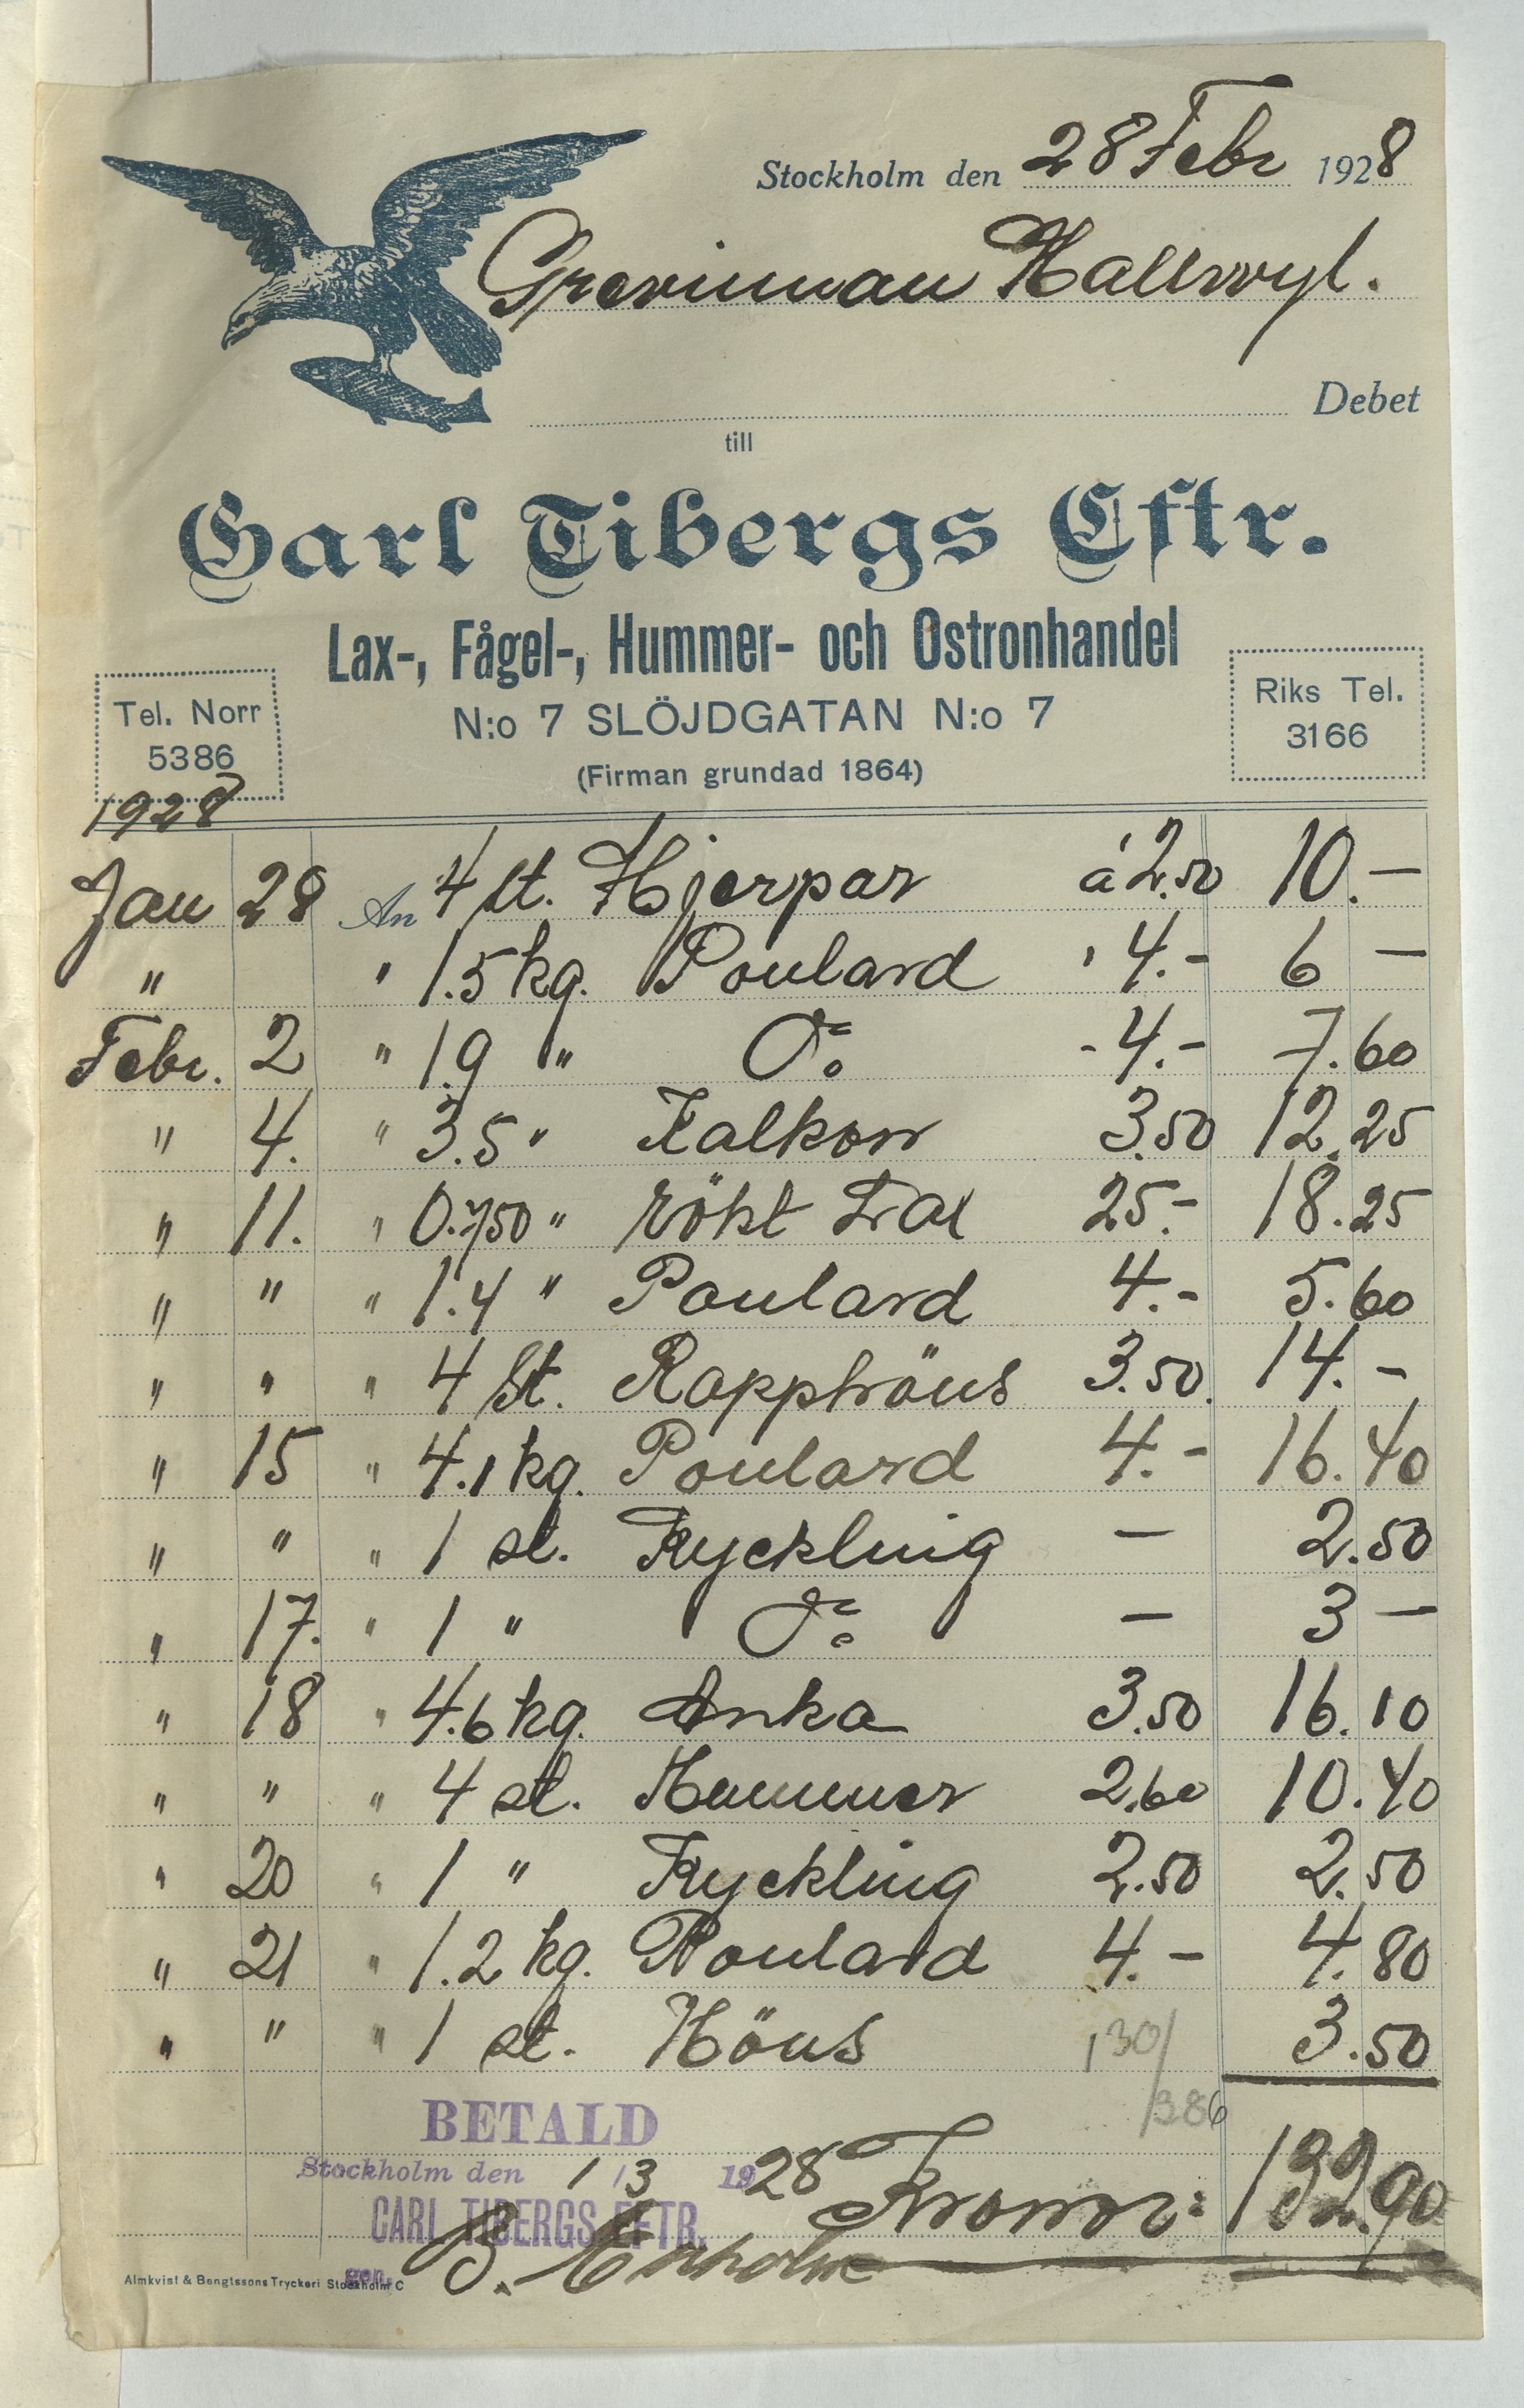 Stockholm den 28 Febr 1928
Grevinnan Hallwyl.
Debet
till
Carl Tibergs Eftr.
Lax-, Fågel-, Hummer- och Ostronhandel
Tel. Norr
5386
N:o 7 SLÖJDGATAN N:o 7
Riks Tel.
3166
(Firman grundad 1864)
1928
Jan 28 An 4 st. Hjerpar á 2.50 10.—
" " 1.5 kg. Poulard " 4.- 6 —
Febr. 2 " 1.9 " Do - 4.- 7.60
" 4. " 3.5 " Kalkon 3.50 12.25
" 11. " 0.750 " rökt Lax 25.- 18.25
" " " 1.4 " Poulard 4.- 5.60
" " " 4 st. Rapphöns 3.50 14.-
" 15 " 4.1 kg. Poulard 4.- 16.40
" " " 1 st. Kyckling — 2.50
" 17. " 1 " Do — 3 —
" 18 " 4.6 kg. Anka 3.50 16.10
" " " 4 st. Hummer 2.60 10.40
" 20 " 1 " Kyckling 2.50 2.50
" 21 " 1.2 kg. Poulard 4.- 4.80
" " " 1 st. Höns 3.50
130/
/386
BETALD
Stockholm den 1/3 1928 Kronor: 132.90
CARL TIBERGS EFTR.
B.
gen.
Almkvist & Bengtssons Tryckeri Stockholm C